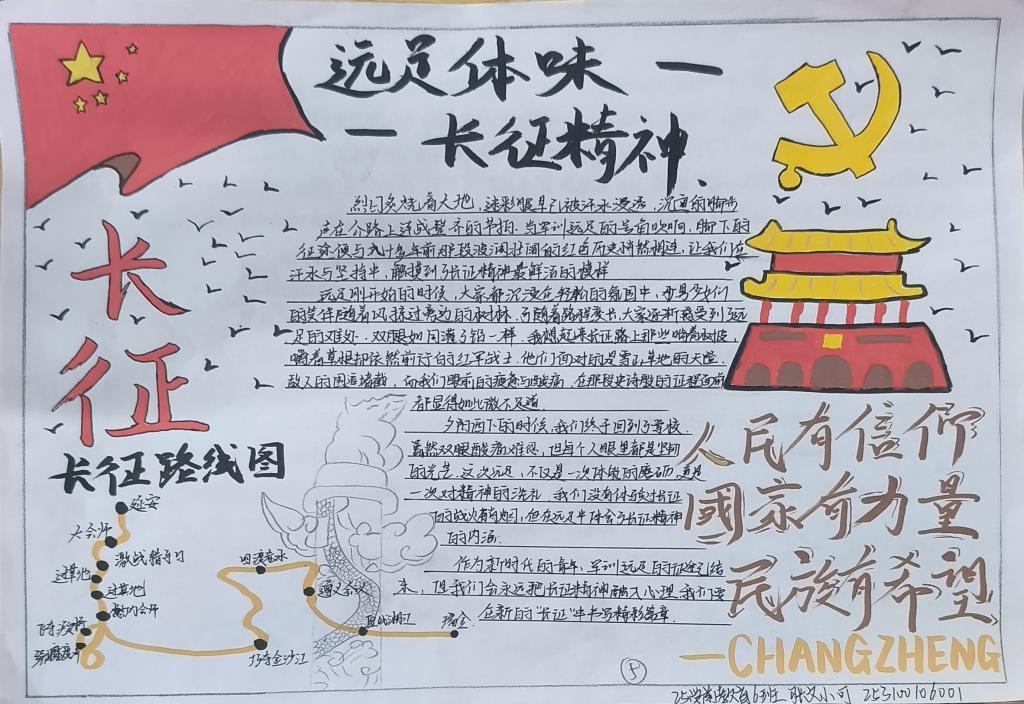 远足体味一
一长征精神、
烈日炙烤着大地,迷彩服早已被汗水浸透,沉重的脚步
声在公路上连成整齐的节拍,当军训远足的号角吹响,脚下的
征途便与九十多年前那段波澜壮阔的红色历史悄然相连,让我们在
汗水与坚持中,触摸到长征精神最鲜活的模样
远足刚开始的时候,大家都沉浸在轻松的氛围中,
的笑伴随着风掠过旁边的树林,可随着路程变长,大家逐渐感受到了远
足的艰难、双腿如同灌了铅一样,我想起来长征路上那些啃着树皮,
嚼着草根却依然前行的红军战士,他们面对的是雪山草地的天堑,
敌人的围追堵截,而我们眼前的疲惫与酸痛,在那段史诗般的征程面前
都显得如此微不足道
夕阳西下的时候,我们终于回到了学校
虽然双腿酸痛难忍,但每个人眼里都是坚韧
的光芒,这次远足,不仅是一次体能的磨砺,更是
一次对精神的洗礼,我们没有体验过长征
的战火硝烟,但在远足中体会了长征精神
的内涵
作为新时代的青年,军训远足的征途已结
束,但我们会永远把长征精神融入心理,我们要
在新的"长征"中书写精彩篇章
长
征
长征路线图
延安
大会师
激战腊子口
过草地
过草地
懋功会师
飞夺泸定桥
强渡大渡河
四渡赤水
巧夺金沙江
遵义会议
血战湘江
瑞金
人民有信仰
國家有力量
民族有希望
—CHANGZHENG
6班 253100106001